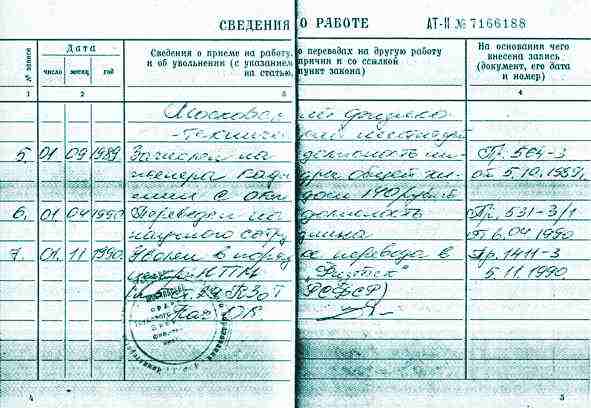 СВЕДЕНИЯ О РАБОТЕ АТ-II № 7166188
№ записи Дата Сведения о приеме на работу, о переводах на другую работу На основании чего
и об увольнении (с указанием причин и со ссылкой внесена запись
число месяц год на статью, пункт закона) (документ, его дата
и номер)
1 2 3 4
Московский физико-
-технический институт
5. 01 09 1989 Зачислен на должность ин- Пр. 564-3
женера кафедры общей хи- от 5.10.1989г.
мии с окладом 140 рублей
6. 01 04 1990 Переведен на должность Пр. 531-3/1
научного сотрудника 6.04 1990
7. 01. 11 1990. Уволен в порядке перевода в Пр. 1411-3
центр НТТМ 5.11 1990
ст. 29 КЗоТ РСФСР)
Нач ОК
4 5